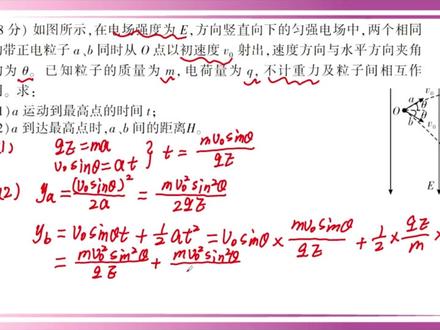 8分)如图所示,在电场强度为E,方向竖直向下的匀强电场中,两个相同
的带正电粒子a、b同时从O点以初速度v₀射出,速度方向与水平方向夹角
均为θ。已知粒子的质量为m,电荷量为q,不计重力及粒子间相互作
用。求:
1)a运动到最高点的时间t;
2)a到达最高点时,a、b间的距离H。
1) qE=ma
v₀sinθ=at } t=mv₀sinθ/qE
(2) ya=(v₀sinθ)²/2a=mv₀²sin²θ/2qE
yb=v₀sinθt+½at²=v₀sinθ×mv₀sinθ/qE+½×qE/m×
=mv₀²sin²θ/qE+mv₀²sin²θ
O
a
b
θ
θ
v₀
v₀
E